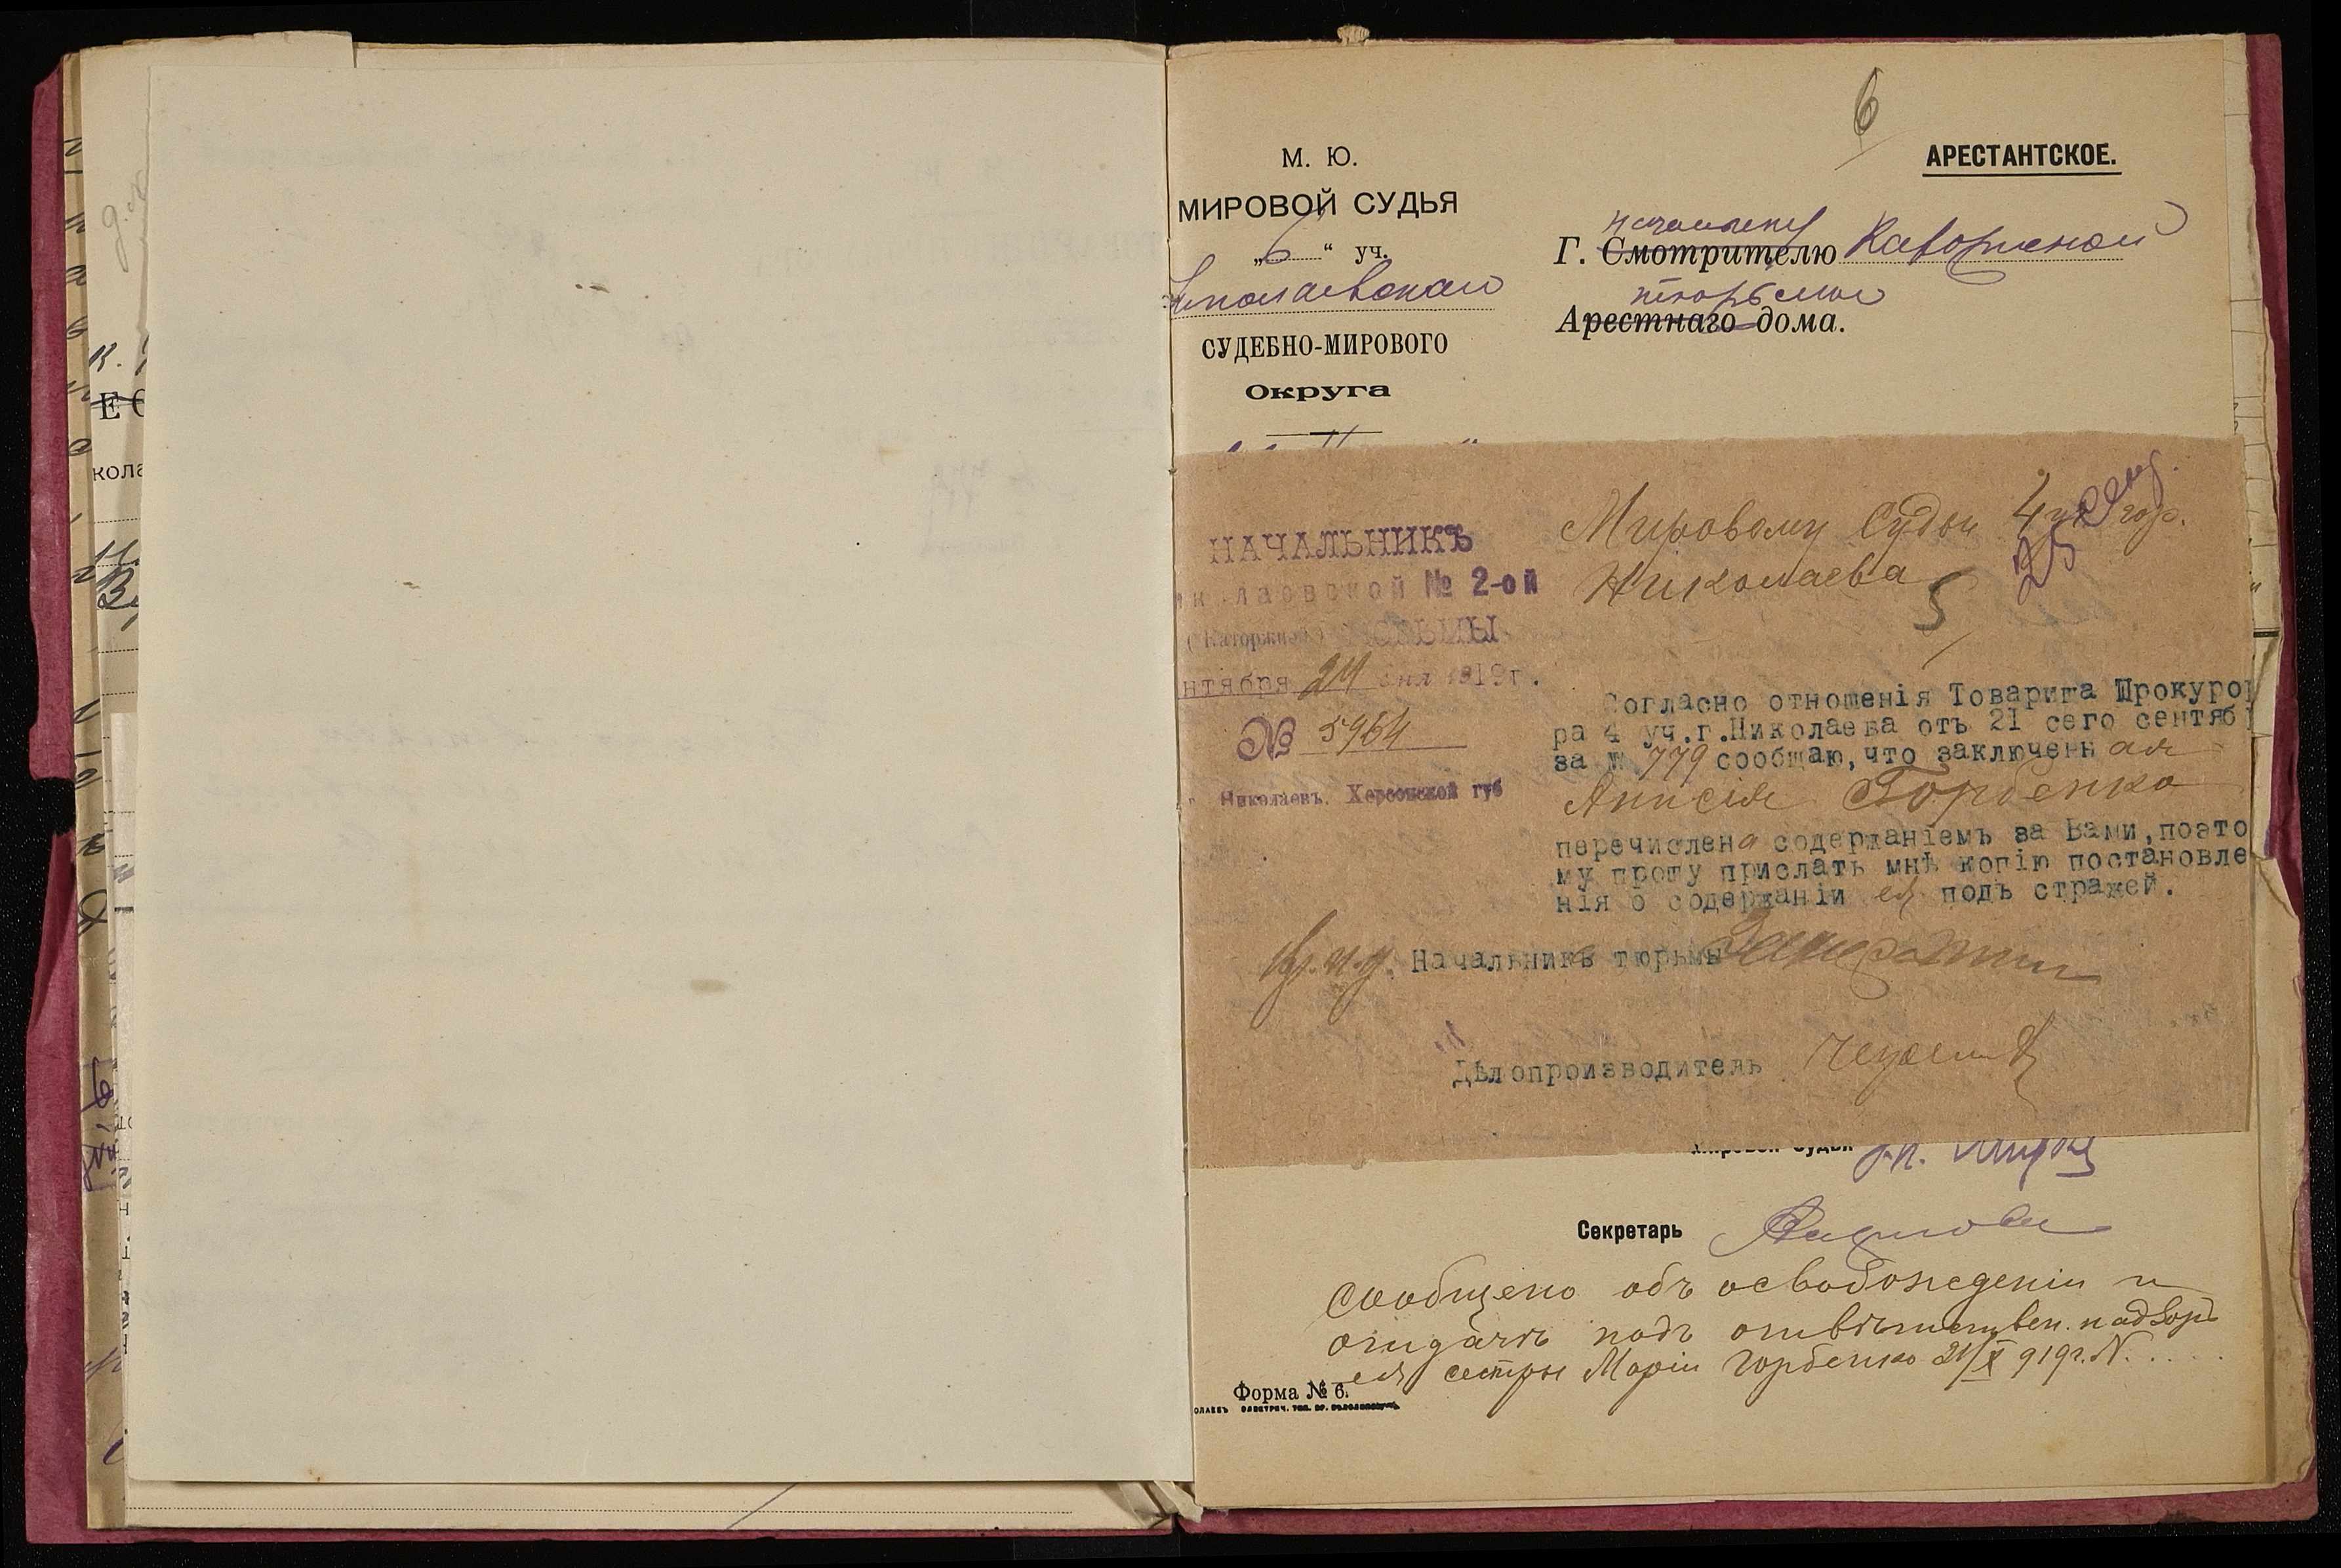 6
АРЕСТАНТСКОЕ.
М. Ю.
МИРОВОЙ СУДЬЯ
„6“ уч.
Николаевскаго
СУДЕБНО-МИРОВОГО
Округа
начальнику
Г. Смотрителю Каторжной
тюрьмы
Арестнаго дома.
НАЧАЛЬНИКЪ
№ 2-ой
(Каторжной) ТЮРЬМЫ
нтября 24 дня 1919г.
№ 5964
Николаевъ, Херсонской губ
Мировому Судьи 4 уч. гор.
Николаева
25
5
Согласно отношенія Товарища Прокуро
ра 4 уч.г.Николаева отъ 21 сего сентяб
за № 779 сообщаю,что заключенн ая
Анисія Горбенко
перечислена содержаніемъ за Вами,поэто
му прошу прислать мнѣ копію постановле
нія о содержаніи ея подъ стражей.
Вр.и.д. Начальникъ тюрьмы
Дѣлопроизводитель
Мировой Судья
Секретарь
Сообщено объ освобожденіи и
отдачѣ подъ отвѣтствен. надзоръ
ея сестры Маріи Горбенко 21/X 919г. N. . . . .
Форма № 6.